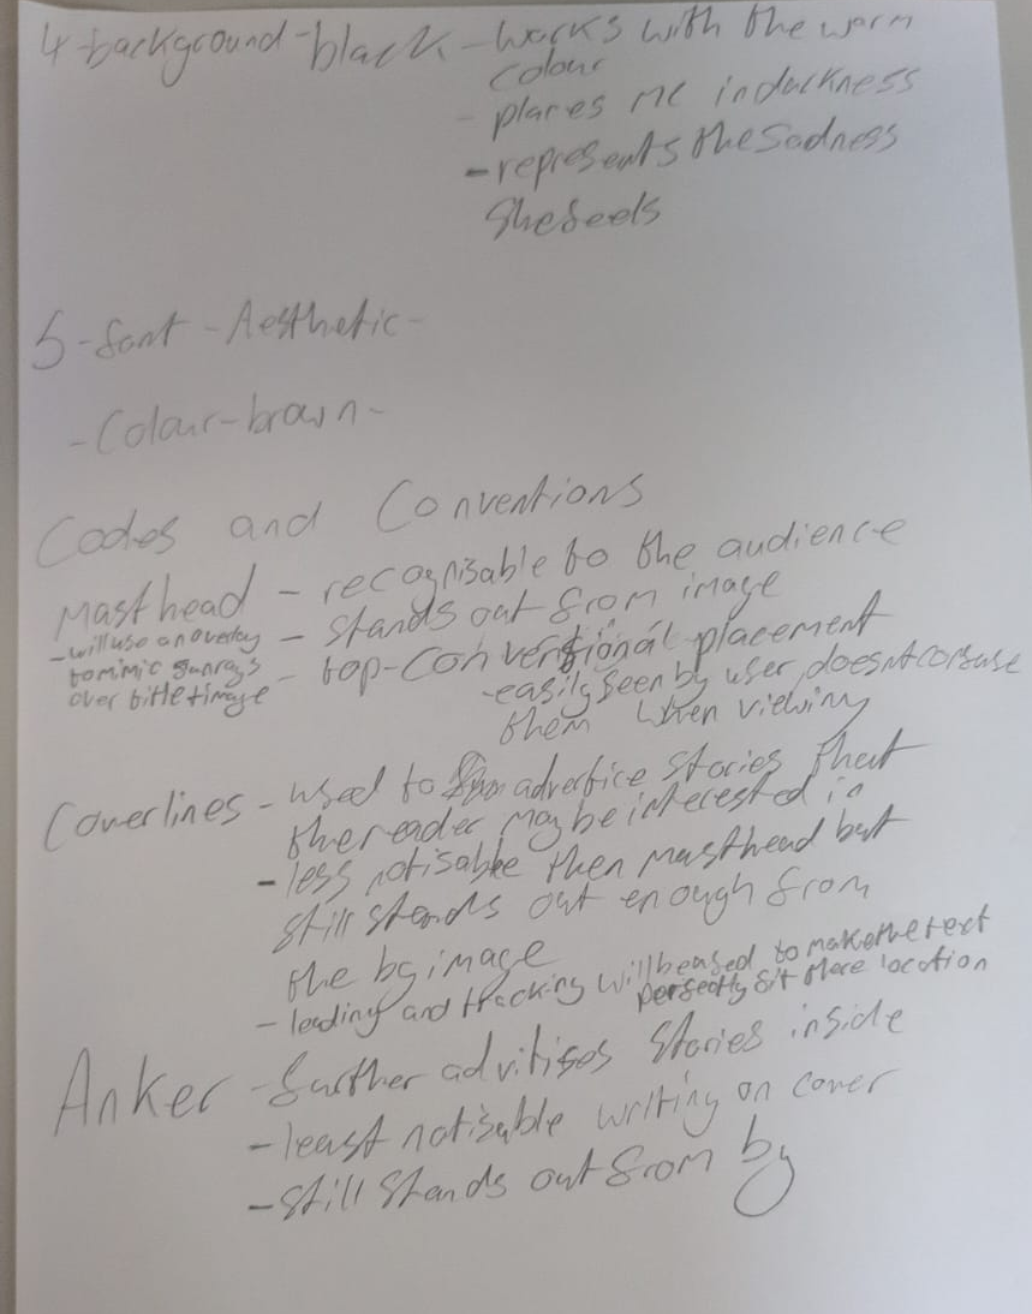 4-background-black - works with the warm
colour
- places MC in darkness
- represents the sadness
She feels
5-font - Aesthetic -
- Colour-brown -
Codes and Conventions
Masthead - recognisable to the audience
- will use an overlay
to mimic sunrays
over title + image
- Stands out from image
- top-conventional placement
- easily seen by user, doesnt confuse
them when viewing
Coverlines - used to advertice stories that
the reader may be interested in
- less notisable then masthead but
still stands out enough from
the bg image
- leading and tracking will be used to make the text
perfectly fit there location
Anker - further advitises Stories inside
- least notisable writing on cover
- still stands out from bg